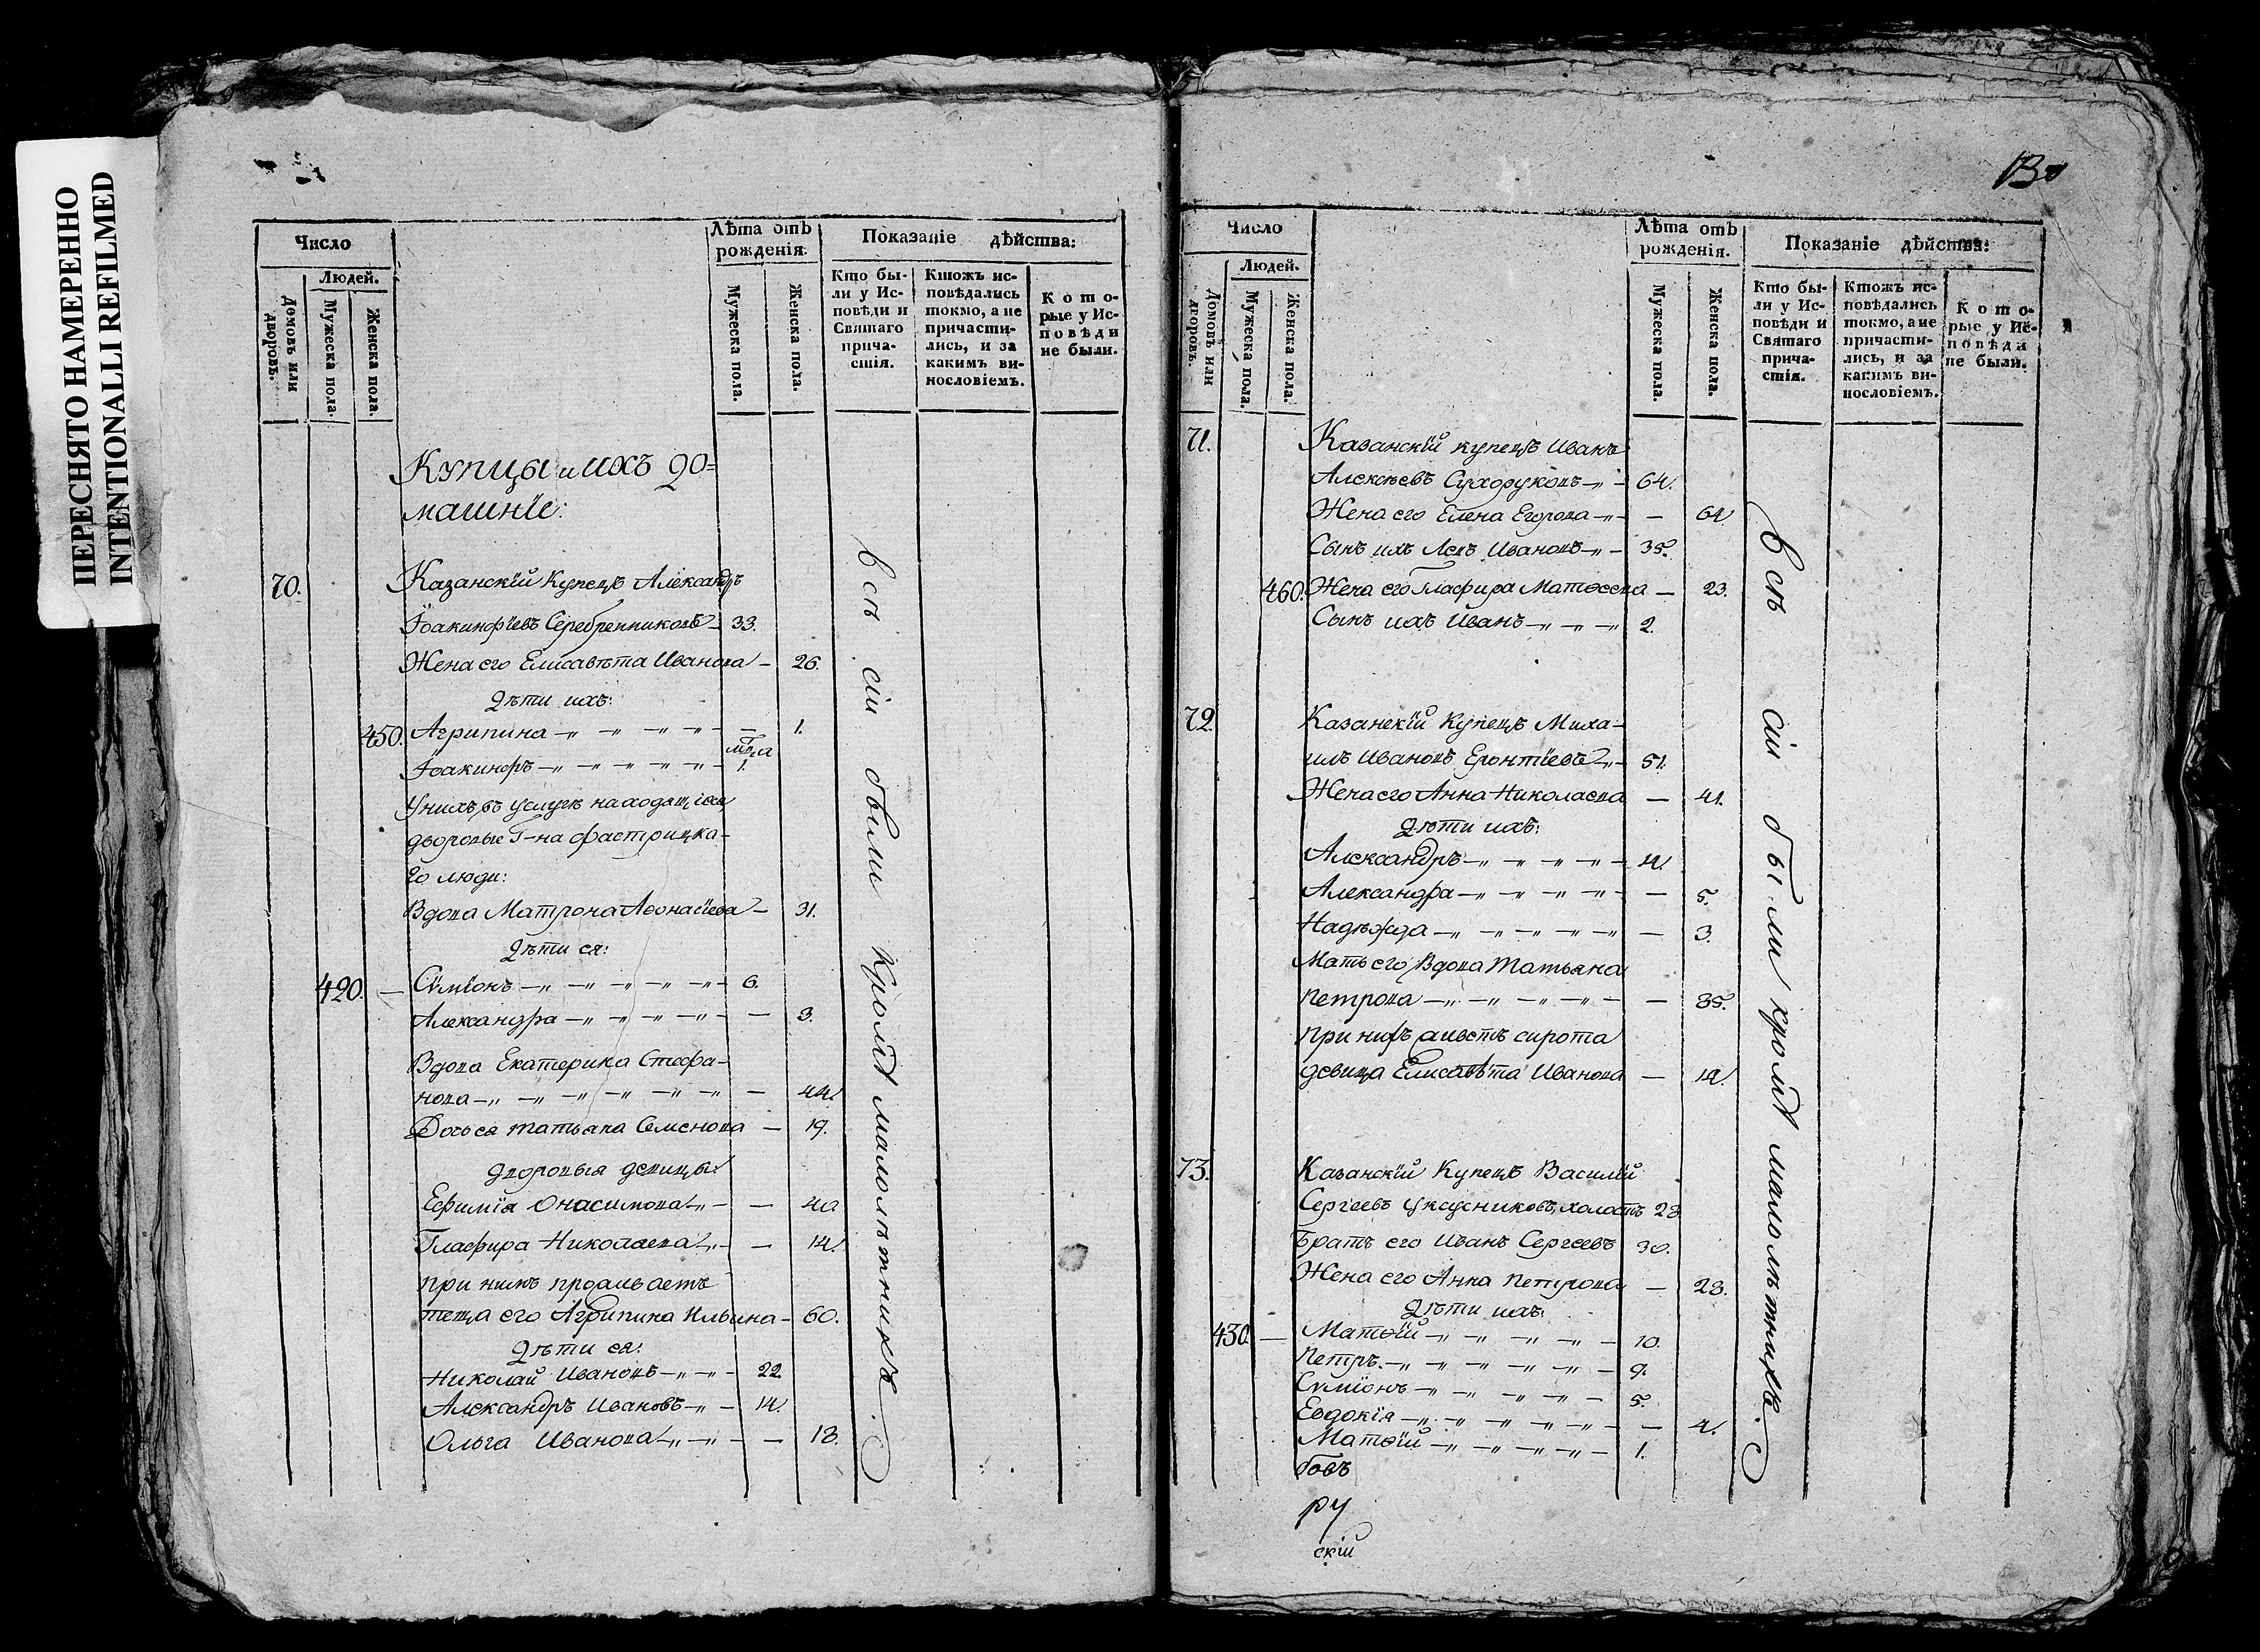 ПЕРЕСНЯТО НАМЕРЕННО
INTENTIONALLI REFILMED
Число
Людей.
Домовъ или дворовъ.
Мужеска пола.
Женска пола.
Лѣта отъ рожденія.
Мужеска пола.
Женска пола.
Показаніе дѣйства:
Кто бы-
ли у Ис-
повѣди и
Святаго
прича-
стія.
Ктожъ ис-
повѣдались
токмо, а не
причасти-
лись, и за
какимъ ви-
нословіемъ.
Кото-
рые у Ис-
повѣди
не были.
Купцы и ихъ до=
машніе:
70. Казанскій Купецъ Александръ
Іоакинфіевъ Серебренниковъ – 33.
Жена его Елисавѣта Иванова – 26.
Дѣти ихъ:
450. Агрипина – „ – „ – „ – „ – – 1.
мца
Іоакинфъ – „ – „ – „ – „ – „ – 1.
У нихъ въ услугѣ находящіеся
дворовые Г-на Фастрицка-
го люди:
Вдова Матрона Аѳонасіева – 31.
Дѣти ея:
420. – Сѵміонъ – „ – „ – „ – „ – „ – 6.
Александра – „ – „ – „ – „ – – 3.
Вдова Екатерина Стефа-
нова – „ – „ – „ – „ – „ – „ – 44.
Дочь ея Татьяна Семенова – 19.
Дворовыя девицы:
Ефимія Онасимова – „ – – 40
Глафира Николаева – „ – – 14.
при нихъ проживаетъ
теща его Агрипина Ильина – 60.
Дѣти ея:
Николай Ивановъ – „ – „ – 22.
Александръ Ивановъ – „ – 14.
Ольга Иванова – „ – „ – – 18.
всѣ сіи были кромѣ малолѣтникъ.
Число
Людей.
Домовъ или дворовъ.
Мужеска пола.
Женска пола.
Лѣта отъ рожденія.
Мужеска пола.
Женска пола.
Показаніе дѣйства:
Кто бы-
ли у Ис-
повѣди и
Святаго
прича-
стія.
Ктожъ ис-
повѣдались
токмо, а не
причасти-
лись, и за
какимъ ви-
нословіемъ.
Кото-
рые у Ис-
повѣди
не были.
71. Казанскій купецъ Иванъ
Алексѣевъ Сухоруковъ – „ – 64.
Жена его Елена Егорова – „ – – 64
Сынъ ихъ Левъ Ивановъ – „ – 35.
460. Жена его Глафира Матѳеева – 23.
Сынъ ихъ Иванъ – „ – „ – „ 2.
72. Казанскій Купецъ Миха-
илъ Ивановъ Еронтіевъ – „ – 51.
Жена его Анна Николаева – 41.
Дѣти ихъ:
Александръ – „ – „ – „ – „ – 14.
Александра – „ – „ – „ – „ – – 5.
Надѣжда – „ – „ – „ – „ – „ – 3.
Мать его Вдова Татьяна
Петрова – „ – „ – „ – „ – – 85.
При нихъ живетъ сирота
девица Елисавѣта Иванова – 14.
73. Казанскій Купецъ Василій
Сергеевъ Уксусниковъ, холостъ 28
Братъ его Иванъ Сергеевъ 30.
Жена его Анна Петрова – 28.
Дѣти ихъ:
430. – Матѳій – „ – „ – „ – „ – 10.
Петръ. – „ – „ – „ – „ – „ – 9.
Сѵміонъ – „ – „ – „ – „ – 5.
Евдокія – „ – „ – „ – „ – „ – – 4.
Матѳій – „ – „ – „ – „ – 1.
всѣ сіи были кромѣ малолѣтникъ.
бовъ
ру
скій